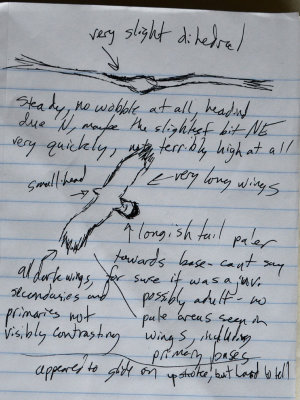 very slight dihedral
steady, no wobble at all, headed
due N, maybe the slightest bit NE
very quickly, not terribly high at all
small head
very long wings
longish tail paler
towards base - can't say
for sure if it was a juv.
possibly adult - no
pale areas seen in
wings, including
primary bases
all dark wings,
secondaries and
primaries not
visibly contrasting
appeared to glide on upstroke, but hard to tell